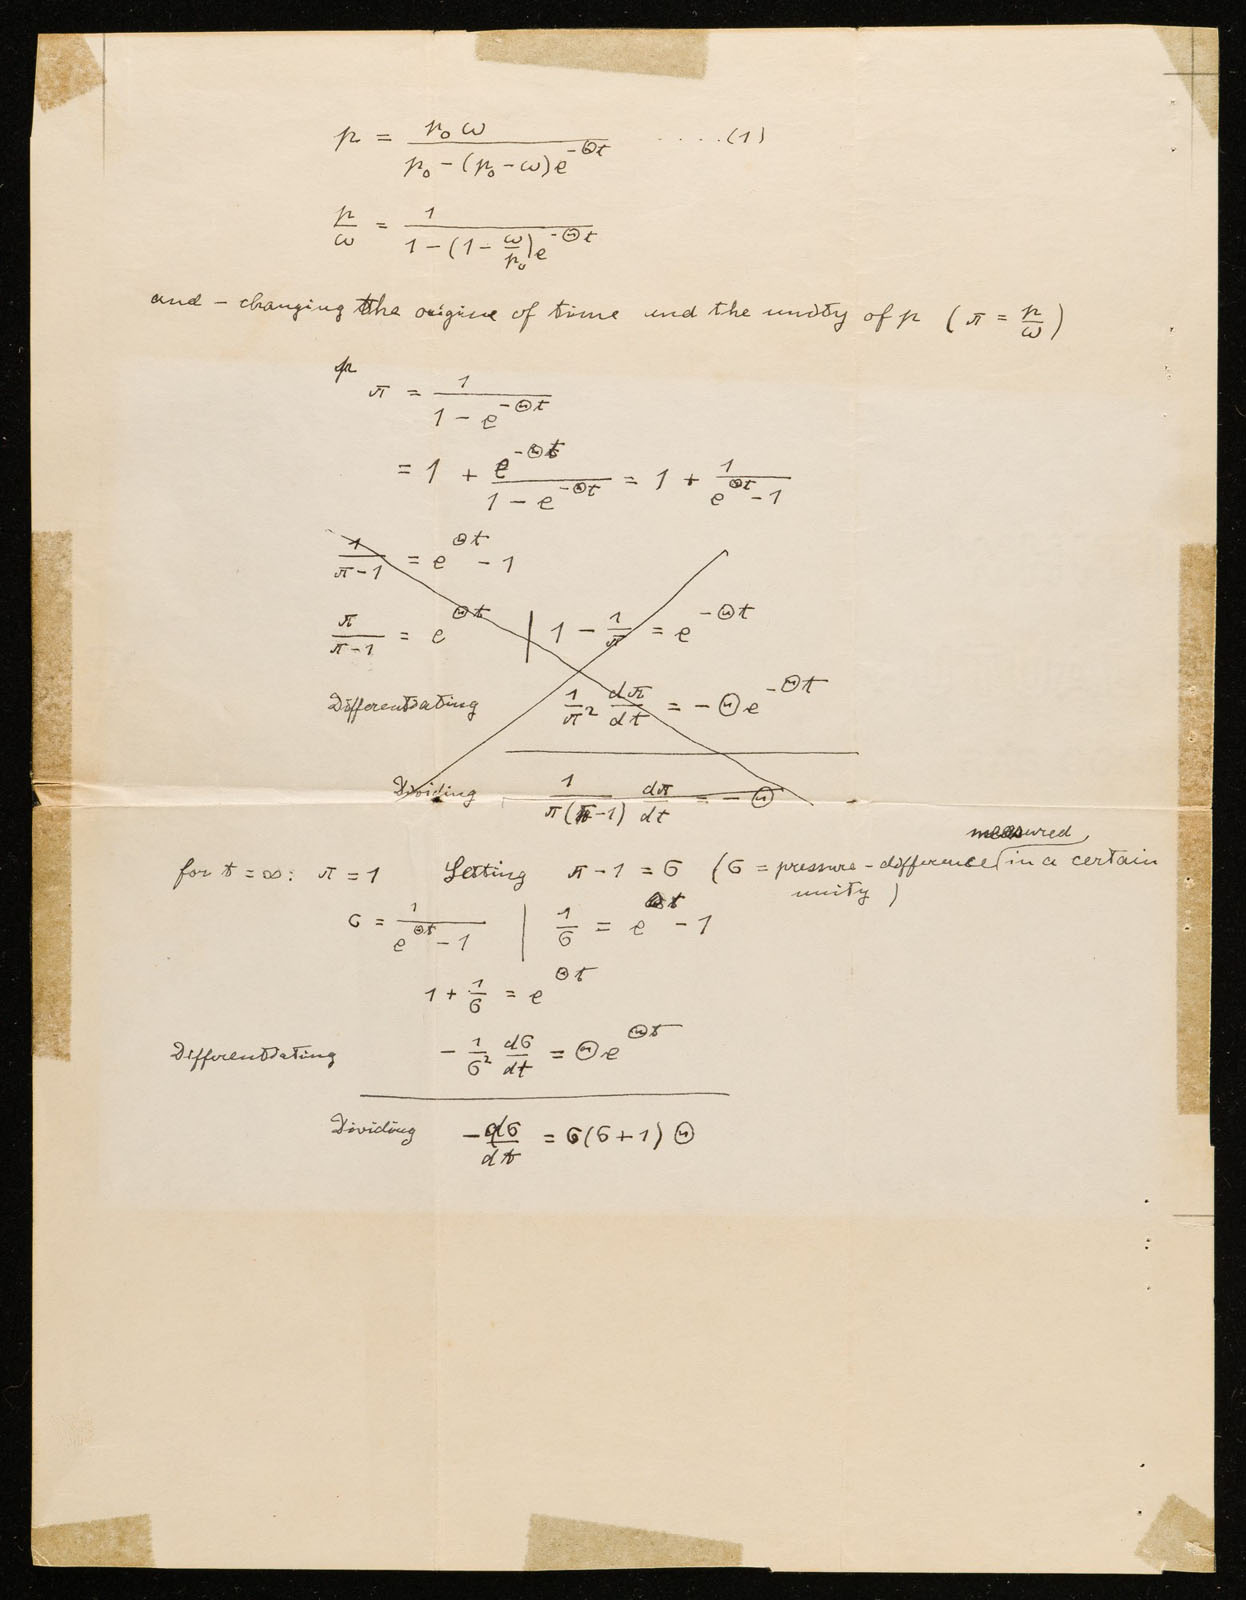 p = p₀ω / (p₀ − (p₀ − ω)e^{−Θt}) ....(1)
p/ω = 1 / (1 − (1 − ω/p₀)e^{−Θt})
and – changing the origine of time and the unity of p (π = p/ω)
p π = 1 / (1 − e^{−Θt})
= 1 + e^{−Θt} / (1 − e^{−Θt}) = 1 + 1 / (e^{Θt} − 1)
1/(π−1) = e^{Θt} − 1
π/(π−1) = e^{Θt} | 1 − 1/π = e^{−Θt}
Differentiating 1/π² dπ/dt = −Θe^{−Θt}
Dividing 1/(π(π−1)) dπ/dt = −Θ
for t = ∞: π = 1 Setting π − 1 = σ (σ = pressure-difference measured in a certain
unity)
σ = 1/(e^{Θt} − 1) | 1/σ = e^{Θt} − 1
1 + 1/σ = e^{Θt}
Differentiating −1/σ² dσ/dt = Θe^{Θt}
Dividing −dσ/dt = σ(σ+1)Θ